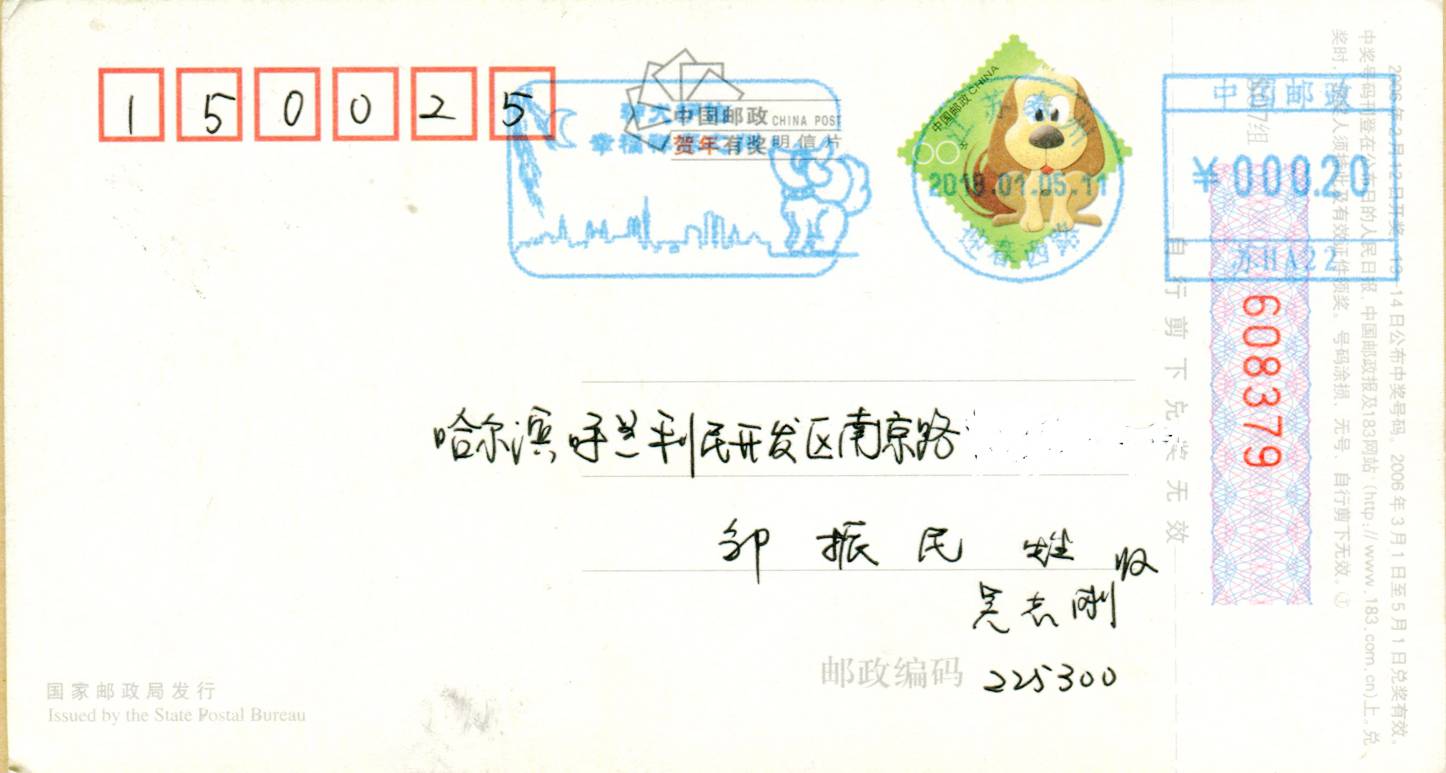 150025
中国邮政 CHINA POST
贺年有奖明信片
幸福
中国邮政 CHINA
江苏泰州
2018.01.05.11
迎春西路
中国邮政
¥000.20
苏HA22
608379
自行剪下兑奖无效
哈尔滨呼兰利民开发区南京路
邹振民 先生 收
吴志刚
邮政编码 225300
国家邮政局发行
Issued by the State Postal Bureau
2006年2月12日开奖,13—14日公布中奖号码。2006年3月1日至5月1日兑奖有效。
中奖号码刊登在公布日的人民日报、中国邮政报及183网站(http://www.183.com.cn)上。兑
奖时,
有效证件领奖。号码涂损、无号、自行剪下无效。